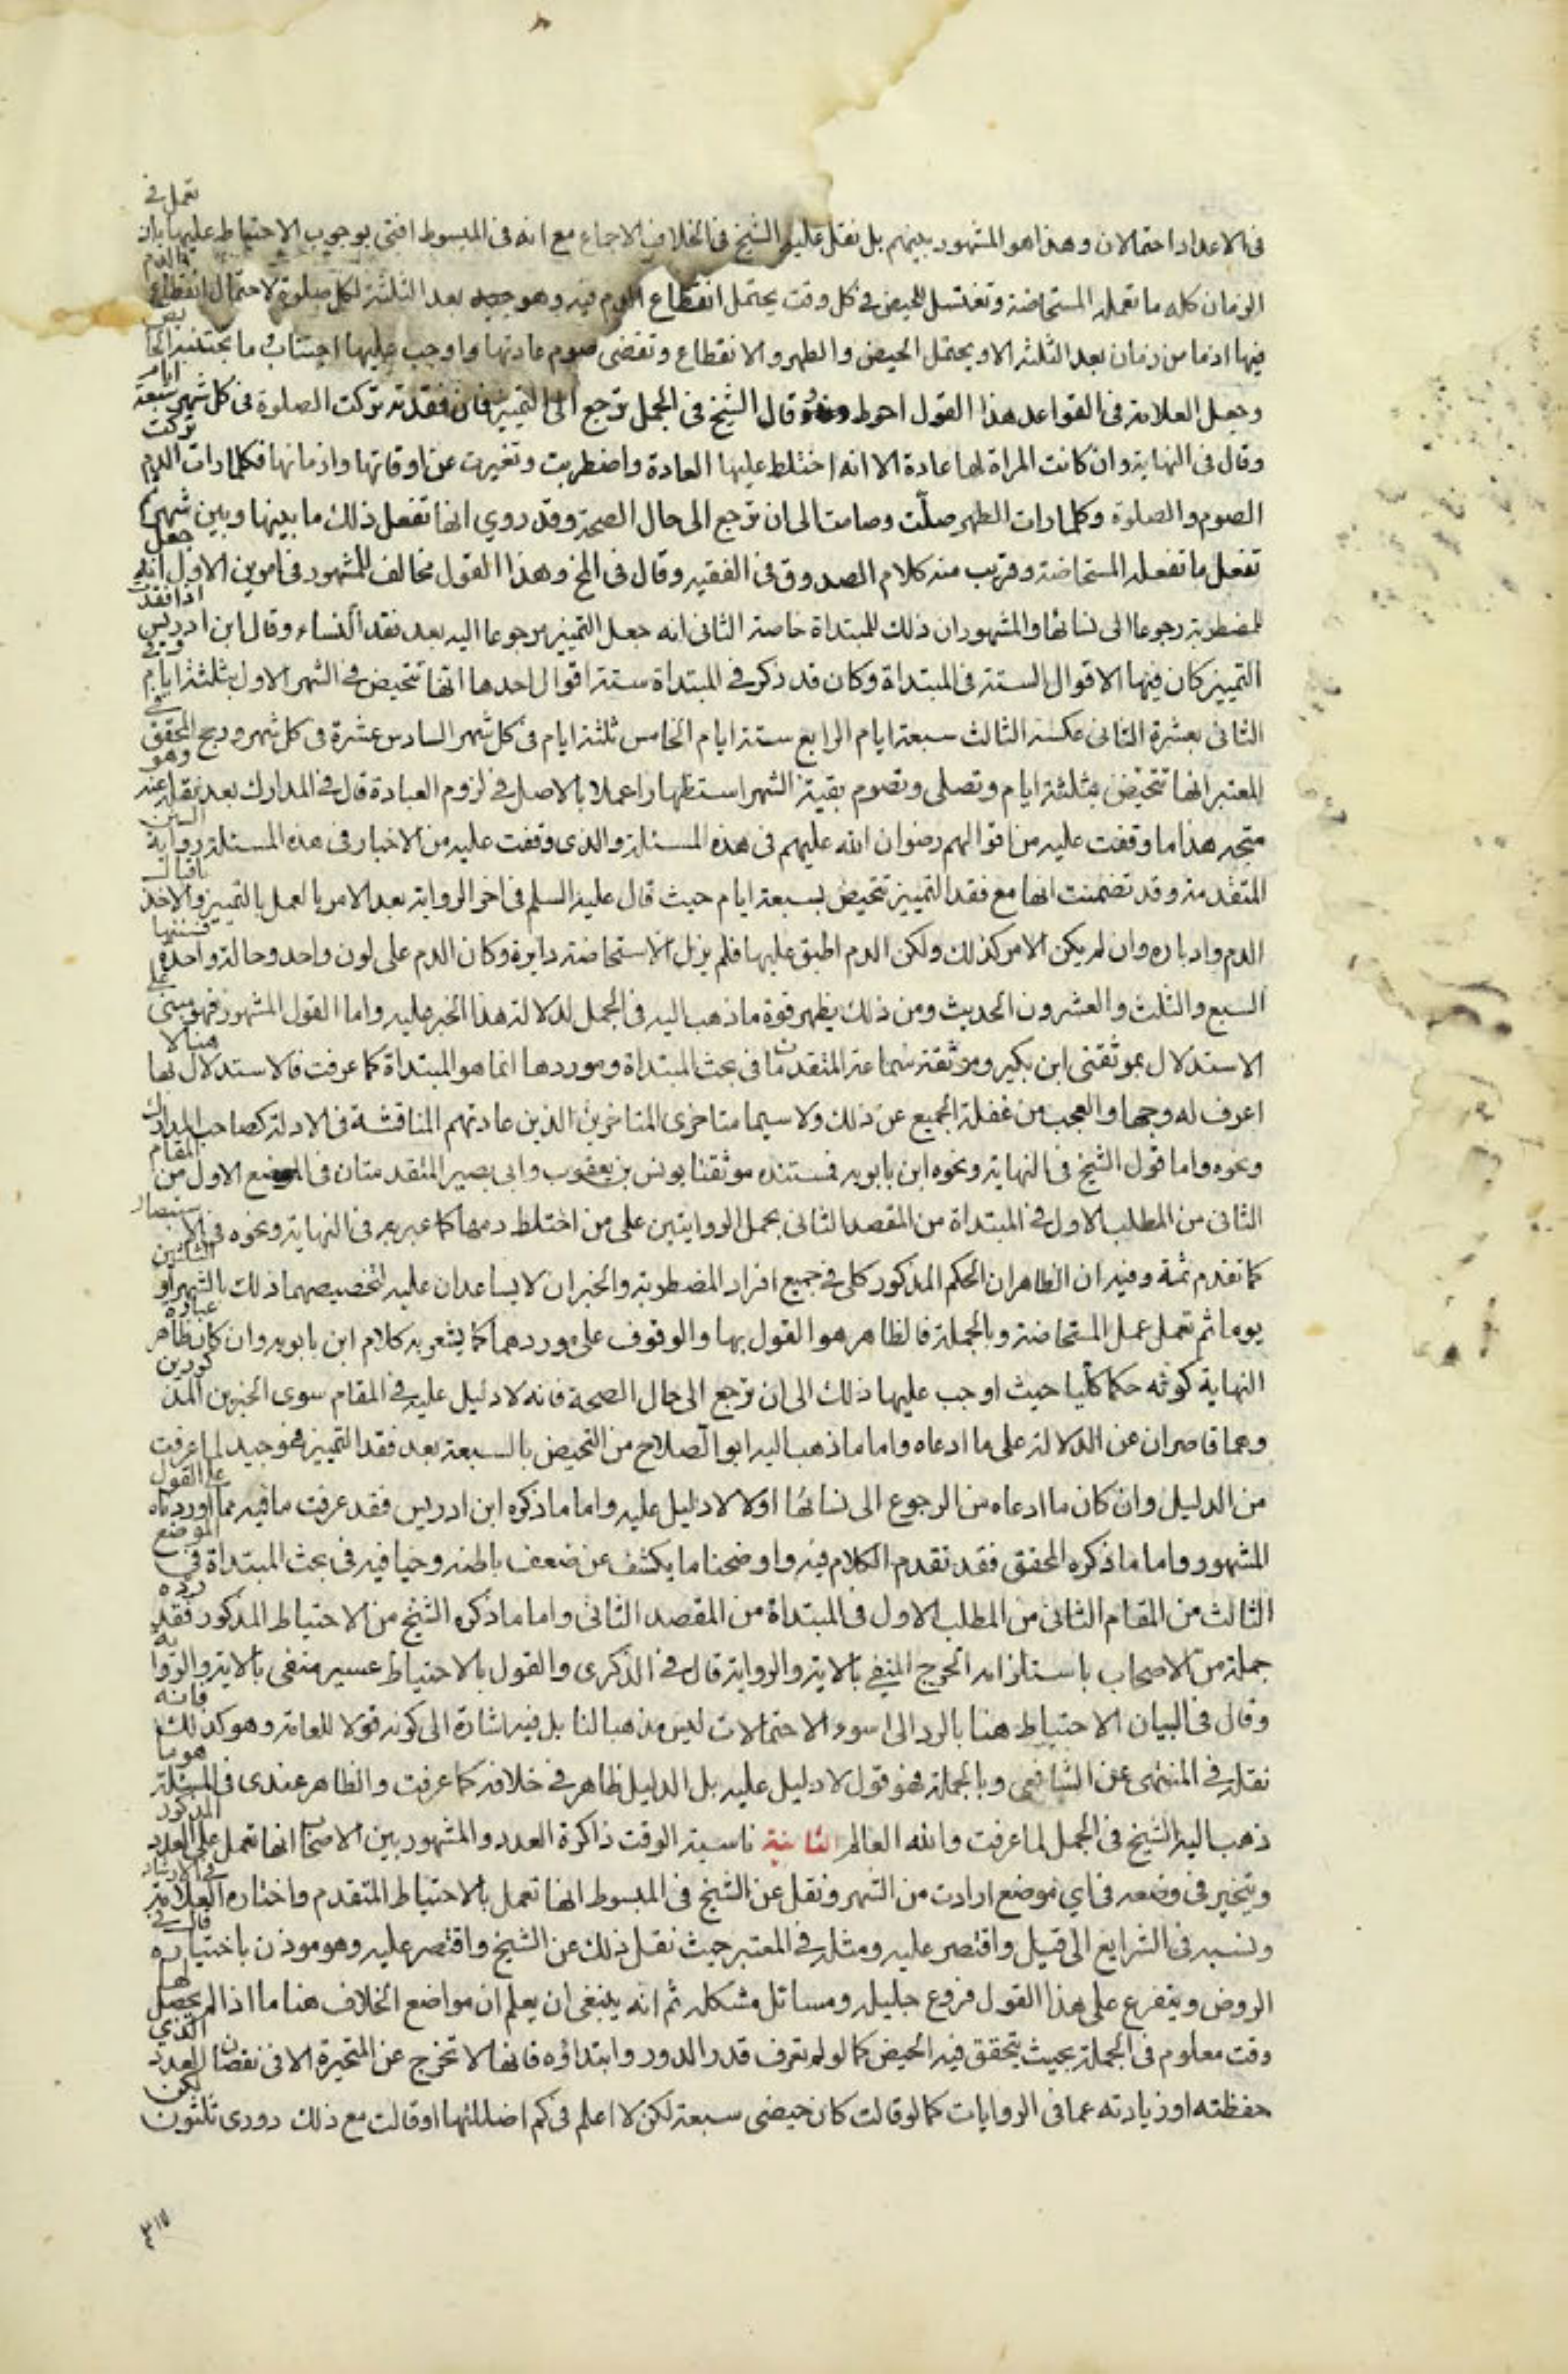 في الاعداد احتمالان وهذا هو المشهور بينهم بل نقل عليه الشيخ في الخلاف الاجماع مع انه في المبسوط افتى بوجوب الاحتياط عليها بان تعمل في
الزمان كله ما تعمله المستحاضة وتغتسل للحيض في كل وقت يحتمل انقطاع الدم فيه وهو بعد الثلثة لكل صلوة لاحتمال انقطاع الدم
فيها اذ ما من زمان بعد الثلثة الا ويحتمل الحيض والطهر والانقطاع وتقضى صوم عادتها واوجب عليها اجتناب ما يجتنبه الحايض
وجعل العلامة في القواعد هذا القول احوط وقال الشيخ في الجمل ترجع الى التمييز فان فقدته تركت الصلوة في كل شهر سبعة ايام
وقال في النهاية وان كانت المراة لها عادة الا انه اختلط عليها العادة واضطربت وتغيرت عن اوقاتها وازمانها فكلما رات الدم تركت
الصوم والصلوة وكلما رات الطهر صلّت وصامت الى ان ترجع الى حال الصحة وقد روي انها تفعل ذلك ما بينها وبين شهر ثم
تفعل ما تفعله المستحاضة وقريب منه كلام الصدوق في الفقيه وقال في المخ وهذا القول مخالف للمشهور في امرين الاول انه جعل
للمضطربة رجوعا الى نسائها والمشهور ان ذلك للمبتداة خاصة الثانى انه جعل التمييز مرجوعا اليه بعد فقد النساء وقال ابن ادريس اذا فقدت
التمييز كان فيها الاقوال الستة في المبتداة وكان قد ذكر في المبتداة ستة اقوال احدها انها تتحيض في الشهر الاول بثلثة ايام وفي
الثانى بعشرة الثانى عكسه الثالث سبعة ايام الرابع ستة ايام الخامس ثلثة ايام في كل شهر السادس عشرة في كل شهر ورجح المحقق في
المعتبر انها تتحيض بثلثة ايام وتصلى وتصوم بقية الشهر استظهارا عملا بالاصل في لزوم العبادة قال في المدارك بعد نقله عنه وهو
متجه هذا ما وقفت عليه من اقوالهم رضوان الله عليهم في هذه المسئلة والذى وقفت عليه من الاخبار في هذه المسئلة رواية السنن
المتقدمة وقد تضمنت انها مع فقد التمييز تتحيض بسبعة ايام حيث قال عليه السلم في اخر الرواية بعد الامر بالعمل بالتمييز والاخذ باقبال
الدم وادباره وان لم يكن الامر كذلك ولكن الدم اطبق عليها فلم يزل الاستحاضة دايرة وكان الدم على لون واحد وحالة واحدة فسنتها
السبع والثلث والعشرون الحديث ومن ذلك يظهر قوة ما ذهب اليه في الجمل لدلالة هذا الخبر عليه واما القول المشهور فهو مبنى على
الاستدلال بموثقتى ابن بكير وموثقة سماعة المتقدمات في بحث المبتداة وموردها انما هو المبتداة كما عرفت فالاستدلال بها هنا لا
اعرف له وجها والعجب من غفلة الجميع عن ذلك ولا سيما متاخرى المتاخرين الذين عادتهم المناقشة في الادلة كصاحب المدارك
ونحوه واما قول الشيخ في النهاية ونحوه ابن بابويه فمستنده موثقتا يونس بن يعقوب وابى بصير المتقدمتان في الموضع الاول من المقام
الثانى من المطلب الاول في المبتداة من المقصد الثانى بحمل الروايتين على من اختلط دمها كما عبر به في النهاية ونحوه في الاستبصار
كما تقدم ثمة وفيه ان الظاهر ان الحكم المذكور كلى في جميع افراد المضطربة والخبران لا يساعدان عليه لتخصيصهما ذلك بالشهر او الثلثين
يوما ثم تعمل عمل المستحاضة وبالجملة فالظاهر هو القول بها والوقوف على موردهما كما يشعر به كلام ابن بابويه وان كان ظاهر عبارة
النهاية كونه حكما كليا حيث اوجب عليها ذلك الى ان ترجع الى حال الصحة فانه لا دليل عليه في المقام سوى الخبرين المذكورين
وهما قاصران عن الدلالة على ما ادعاه واما ما ذهب اليه ابو الصلاح من التحيض بالسبعة بعد فقد التمييز فهو جيد لما عرفت
من الدليل وان كان ما ادعاه من الرجوع الى نسائها اولا لا دليل عليه واما ما ذكره ابن ادريس فقد عرفت ما فيه مما اوردناه على القول
المشهور واما ما ذكره المحقق فقد تقدم الكلام فيه واوضحنا ما يكشف عن ضعف باطنه وخافيه في بحث المبتداة في الموضع
الثالث من المقام الثانى من المطلب الاول في المبتداة من المقصد الثانى واما ما ذكره الشيخ من الاحتياط المذكور فقد رده
جملة من الاصحاب باستلزامه الحرج المنفي بالاية والرواية قال في الذكرى والقول بالاحتياط عسير منفى بالاية والرواية
وقال في البيان الاحتياط هنا بالرد الى اسوء الاحتمالات ليس مذهبا لنا بل فيه اشارة الى كونه قولا للعامة وهو كذلك فانه
نقله في المنتهى عن الشافعي وبالجملة فهو قول لا دليل عليه بل الدليل ظاهر في خلافه كما عرفت والظاهر عندى في المسئلة هو ما
ذهب اليه الشيخ في الجمل لما عرفت والله العالم الثانية ناسية الوقت ذاكرة العدد والمشهور بين الاصحاب انها تعمل على العدد المذكور
وتتخير في وضعه في اي موضع ارادت من الشهر ونقل عن الشيخ في المبسوط انها تعمل بالاحتياط المتقدم واختاره العلامة في الارشاد
ونسبه في الشرايع الى قيل واقتصر عليه ومثله في المعتبر حيث نقل ذلك عن الشيخ واقتصر عليه وهو موذن باختياره قال في
الروض ويتفرع على هذا القول فروع جليلة ومسائل مشكلة ثم انه ينبغى ان يعلم ان مواضع الخلاف هنا ما اذا لم يحصل لها
وقت معلوم في الجملة بحيث يتحقق فيه الحيض كما لو لم تعرف قدر الدور وابتداؤه فانها لا تخرج عن المتحيرة الا في نقصان العدد الذي
حفظته او زيادته عما في الروايات كما لو قالت كان حيضى سبعة لكن لا اعلم في كم اضللتها او قالت مع ذلك دورى ثلثون لكن
٣١٧